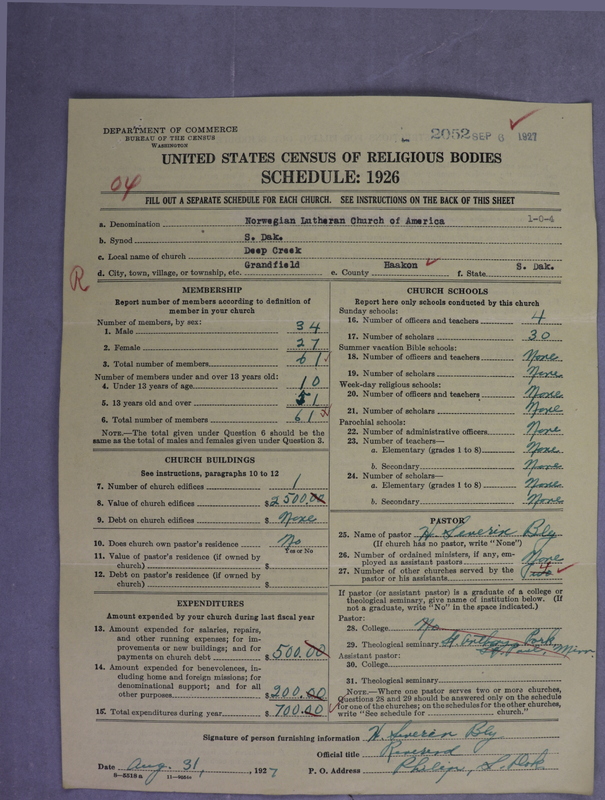 DEPARTMENT OF COMMERCE
BUREAU OF THE CENSUS
WASHINGTON
2052 SEP 6 1927
UNITED STATES CENSUS OF RELIGIOUS BODIES
SCHEDULE: 1926
04
FILL OUT A SEPARATE SCHEDULE FOR EACH CHURCH. SEE INSTRUCTIONS ON THE BACK OF THIS SHEET
a. Denomination Norwegian Lutheran Church of America 1-0-4
b. Synod S. Dak.
c. Local name of church Deep Creek
d. City, town, village, or township, etc. Grandfield e. County Haakon f. State S. Dak.
R
MEMBERSHIP
Report number of members according to definition of
member in your church
Number of members, by sex:
1. Male 34
2. Female 27
3. Total number of members 61
Number of members under and over 13 years old:
4. Under 13 years of age 10
5. 13 years old and over 51
6. Total number of members 61
NOTE.—The total given under Question 6 should be the
same as the total of males and females given under Question 3.
CHURCH BUILDINGS
See instructions, paragraphs 10 to 12
7. Number of church edifices 1
8. Value of church edifices $2500.00
9. Debt on church edifices $ None
10. Does church own pastor's residence No
Yes or No
11. Value of pastor's residence (if owned by
church) $
12. Debt on pastor's residence (if owned by
church) $
EXPENDITURES
Amount expended by your church during last fiscal year
13. Amount expended for salaries, repairs,
and other running expenses; for im-
provements or new buildings; and for
payments on church debt $500.00
14. Amount expended for benevolences, in-
cluding home and foreign missions; for
denominational support; and for all
other purposes $200.00
15. Total expenditures during year $700.00
CHURCH SCHOOLS
Report here only schools conducted by this church
Sunday schools:
16. Number of officers and teachers 4
17. Number of scholars 30
Summer vacation Bible schools:
18. Number of officers and teachers None
19. Number of scholars None
Week-day religious schools:
20. Number of officers and teachers None
21. Number of scholars None
Parochial schools:
22. Number of administrative officers None
23. Number of teachers—
a. Elementary (grades 1 to 8) None
b. Secondary None
24. Number of scholars—
a. Elementary (grades 1 to 8) None
b. Secondary None
PASTOR
25. Name of pastor H. Severin Bly
(If church has no pastor, write "None")
26. Number of ordained ministers, if any, em-
ployed as assistant pastors None
27. Number of other churches served by the
pastor or his assistants 4
If pastor (or assistant pastor) is a graduate of a college or
theological seminary, give name of institution below. (If
not a graduate, write "No" in the space indicated.)
Pastor:
28. College No
29. Theological seminary St. Anthony Park
St. Paul, Minn.
Assistant pastor:
30. College
31. Theological seminary
NOTE.—Where one pastor serves two or more churches,
Questions 28 and 29 should be answered only on the schedule
for one of the churches; on the schedules for the other churches,
write "See schedule for church."
Signature of person furnishing information H. Severin Bly
Official title Reverend
Date Aug. 31, 1927 P. O. Address Philip, S. Dak.
8-5518a 11-9351